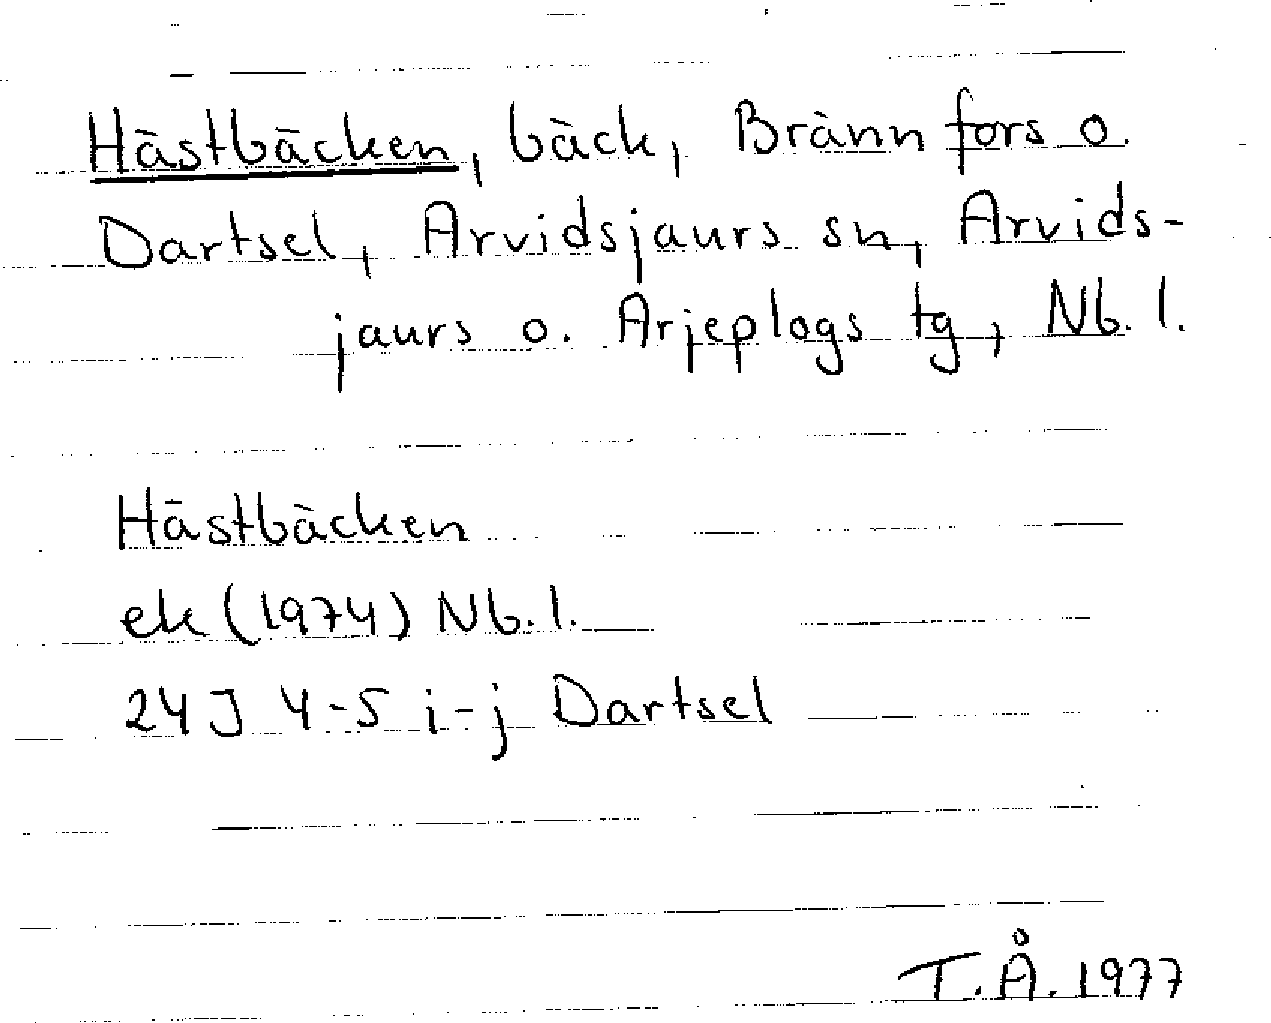 Hästbäcken, bäck, Brännfors o.
Dartsel, Arvidsjaurs sn, Arvids-
jaurs o. Arjeplogs tg, Nb. l.
Hästbäcken
ek (1974) Nb. l.
24J 4-5 i-j Dartsel
T.Å. 1977